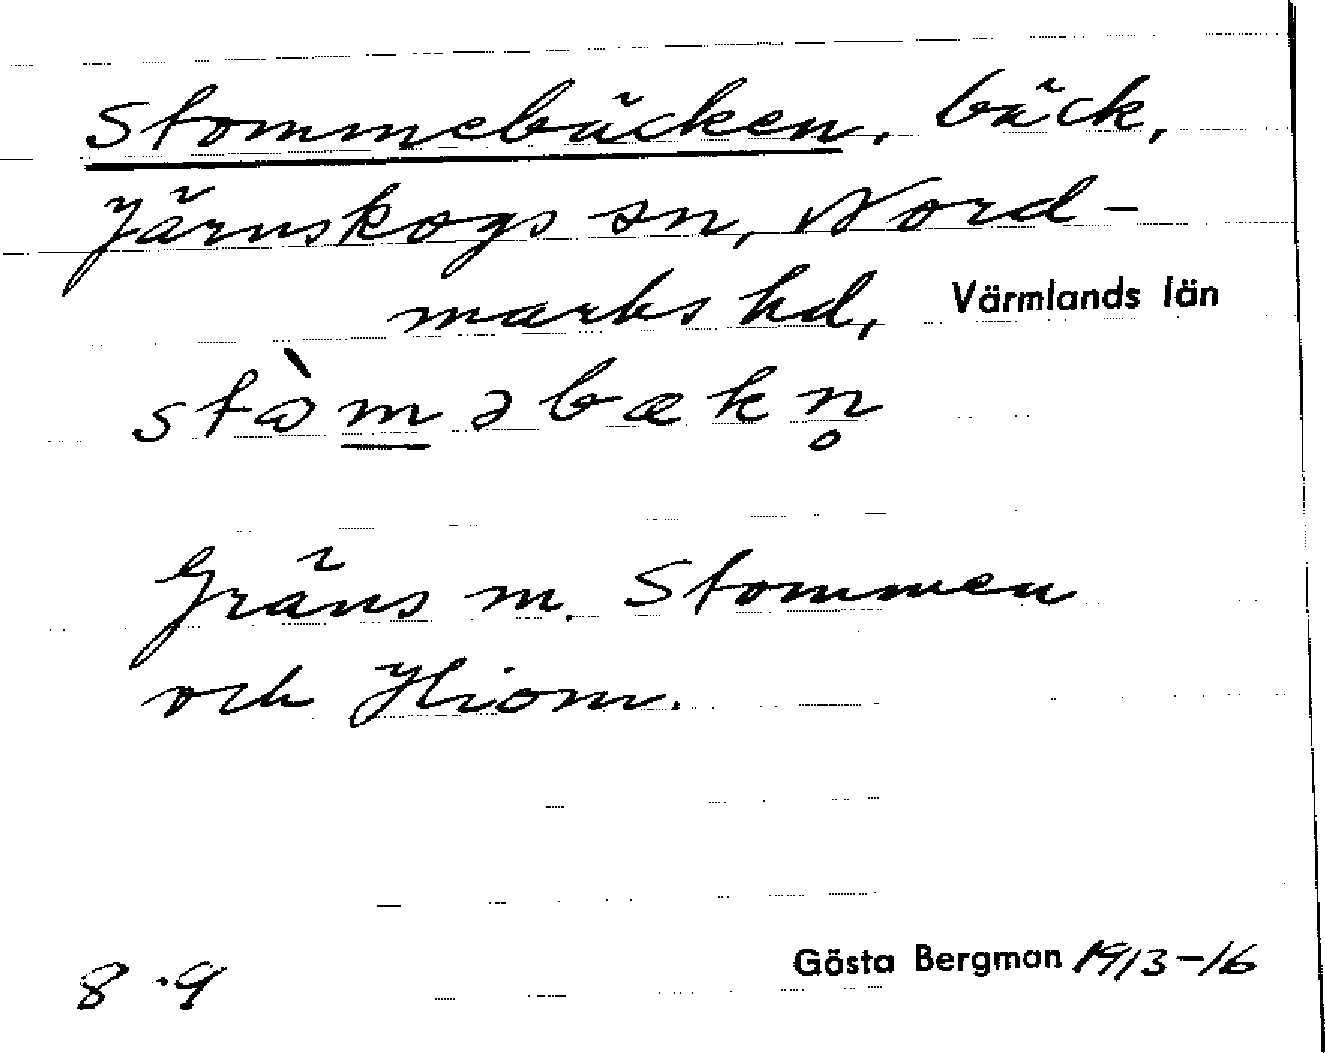 Stommebäcken, bäck,
Järnskogs sn, Nord-
marks hd, Värmlands län
stɷ̀m̲əbækn̥
Gräns m. Stommen
och Hiom.
8 ·9 Gösta Bergman 1913-16